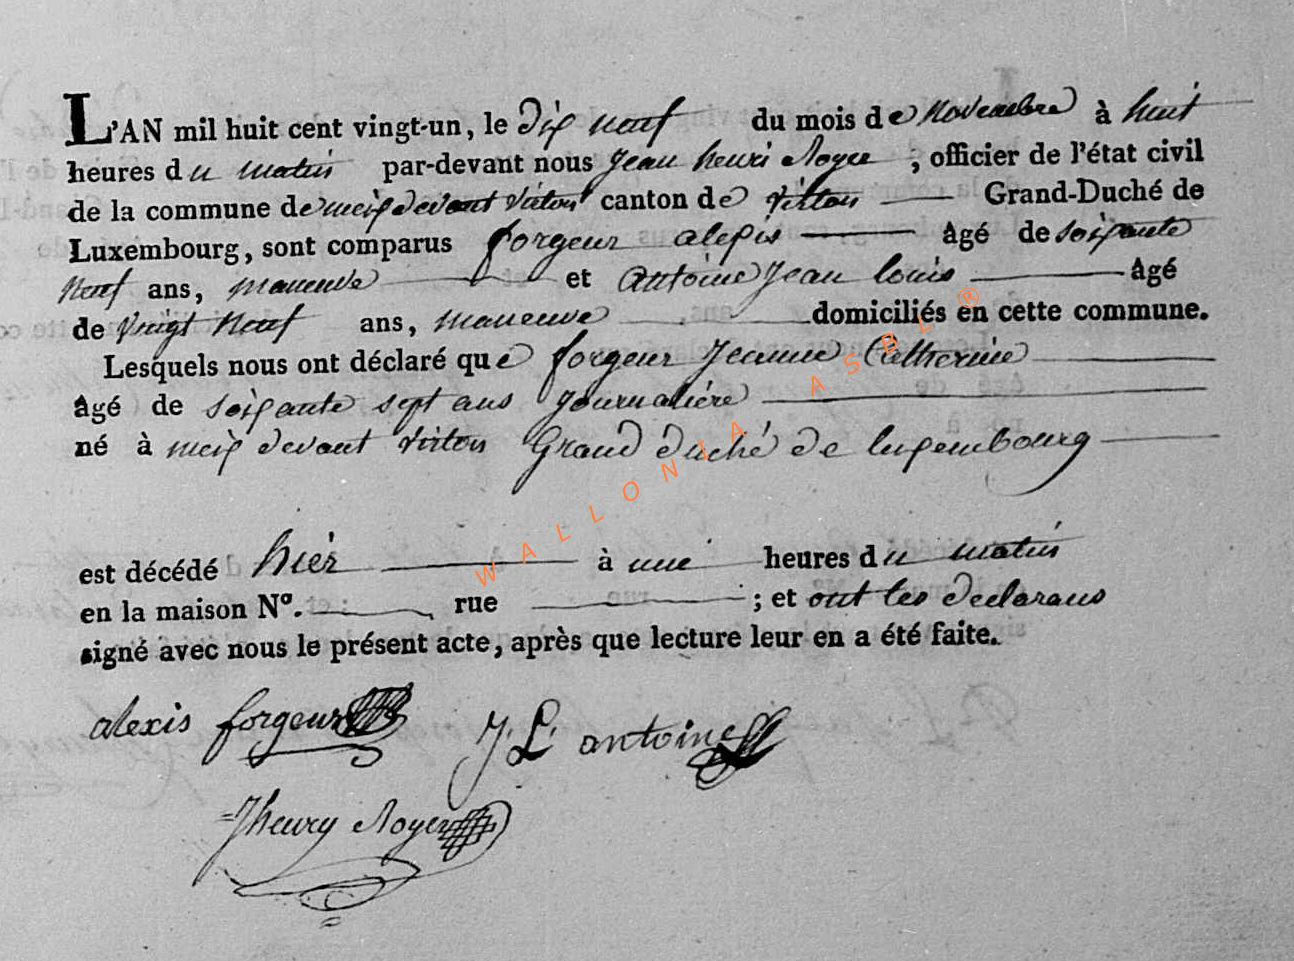 L'AN mil huit cent vingt-un, le dix neuf du mois de Novembre à huit
heures du matin par-devant nous Jean henri Noyer, officier de l'état civil
de la commune de meix devant virton canton de virton Grand-Duché de
Luxembourg, sont comparus forgeur alexis âgé de soixante
Neuf ans, maneuve et antoine Jean louis âgé
de vingt Neuf ans, maneuve domiciliés en cette commune.
Lesquels nous ont déclaré que forgeur Jeanne Catherine
âgé de soixante sept ans Journalière
né à meix devant virton Grand duché de luxembourg
est décédé hier à une heures du matin
en la maison Nº. rue ; et ont les declarans
signé avec nous le présent acte, après que lecture leur en a été faite.
alexis forgeur J. L. antoine
Jhenry Noyer
WALLONIA ASBL ®